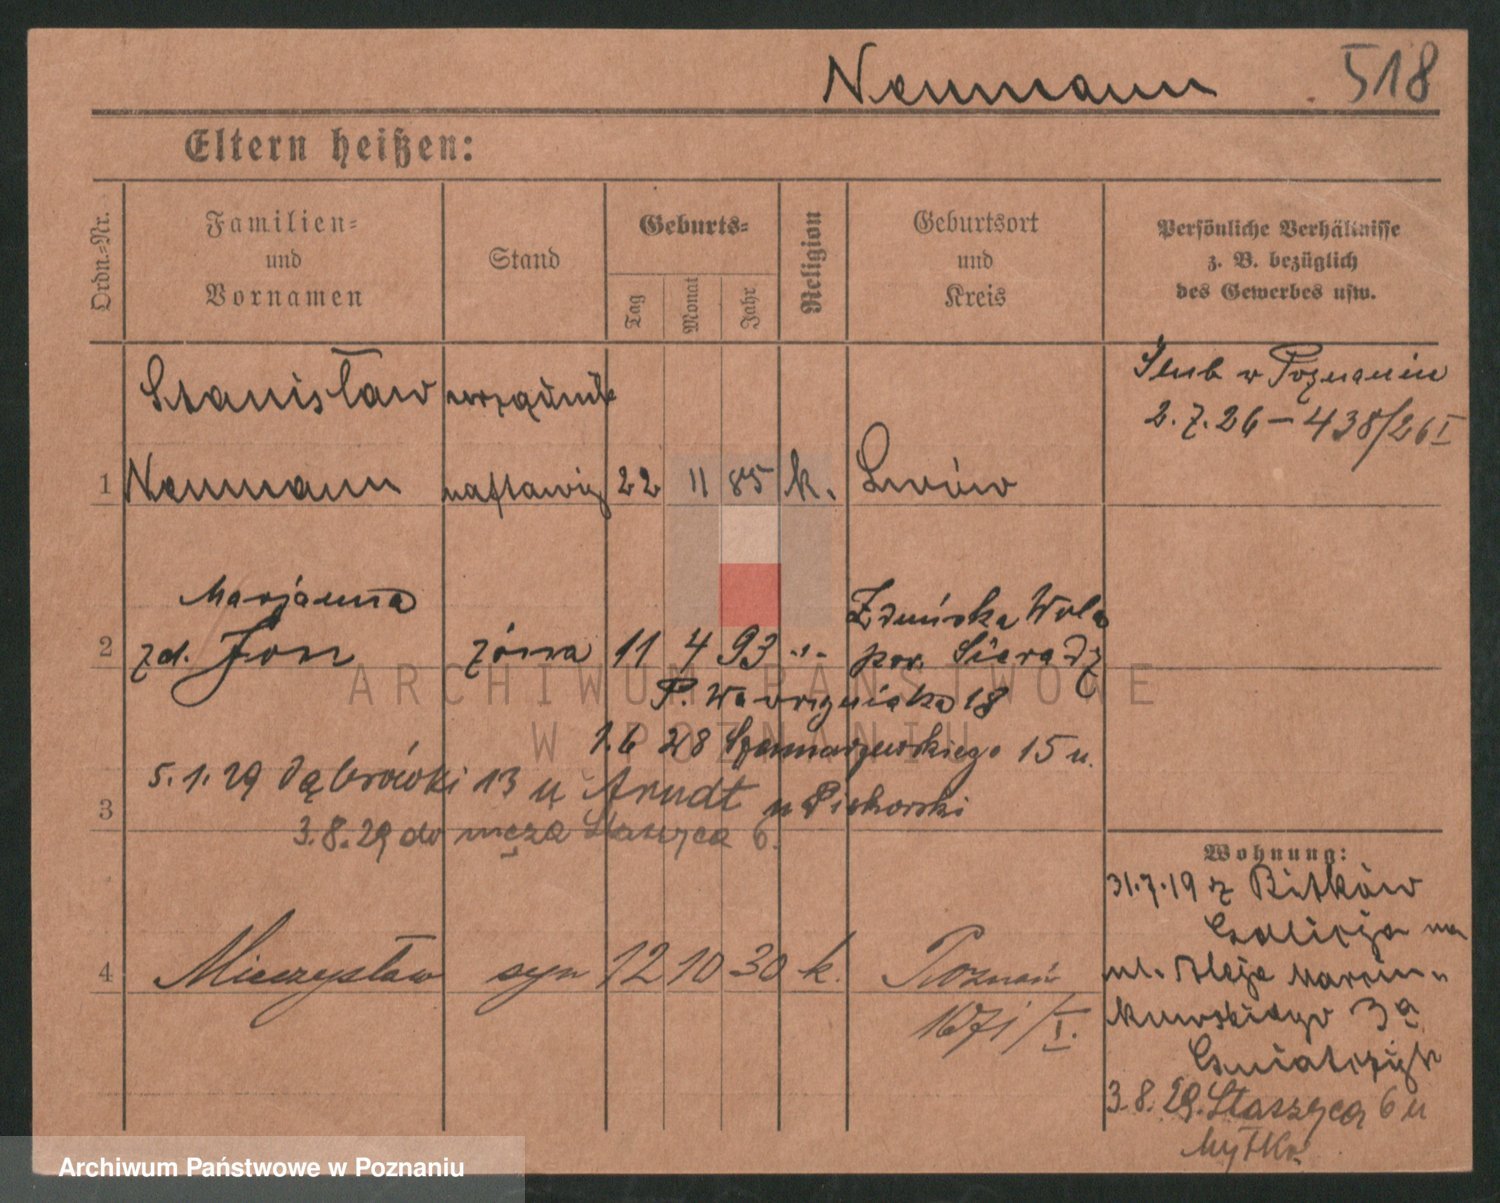 Neumann 518
Eltern heißen:
Ordn.-Nr.
Familien- und Vornamen
Stand
Geburts-
Tag
Monat
Jahr
Religion
Geburtsort und Kreis
Persönliche Verhältnisse z. B. bezüglich des Gewerbes usw.
Stanisław urzędnik
Ślub w Poznaniu
2.7.26 – 438/26 I
1 Neumann naftowy 22 11 85 k. Lwów
Marjanna
Zduńska Wola
2 zd. Jon żona 11 4 93 -"- pow. Sieradz
P. Wawrzyniaka 18
1.6 28 Szamarzewskiego 15 u.
5.1.29 Dąbrówki 13 u Arndt u Piekorski
3
3.8.29 do męża Staszyca 6.
Wohnung:
31.7.19 z Bitków
Galicja na
4 Mieczysław syn 12 10 30 k. Poznań
1671/I.
ul. Aleje Marcin-
kowskiego 3a
3.8.29. Staszyca 6 u
ARCHIWUM PAŃSTWOWE
W POZNANIU
Archiwum Państwowe w Poznaniu